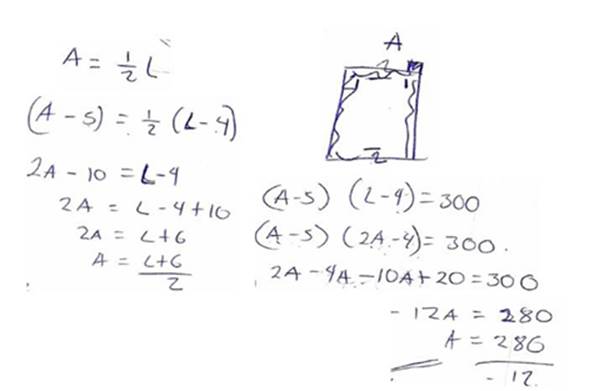 A = 1/2 L
(A - 5) = 1/2 (L - 4)
2A - 10 = L - 4
2A = L - 4 + 10
2A = L + 6
A = L + 6
2
A
2
1
1
2
(A-5) (L-4) = 300
(A-5) (2A-4) = 300.
2A - 4A - 10A + 20 = 300
- 12A = 280
A = 280
- 12